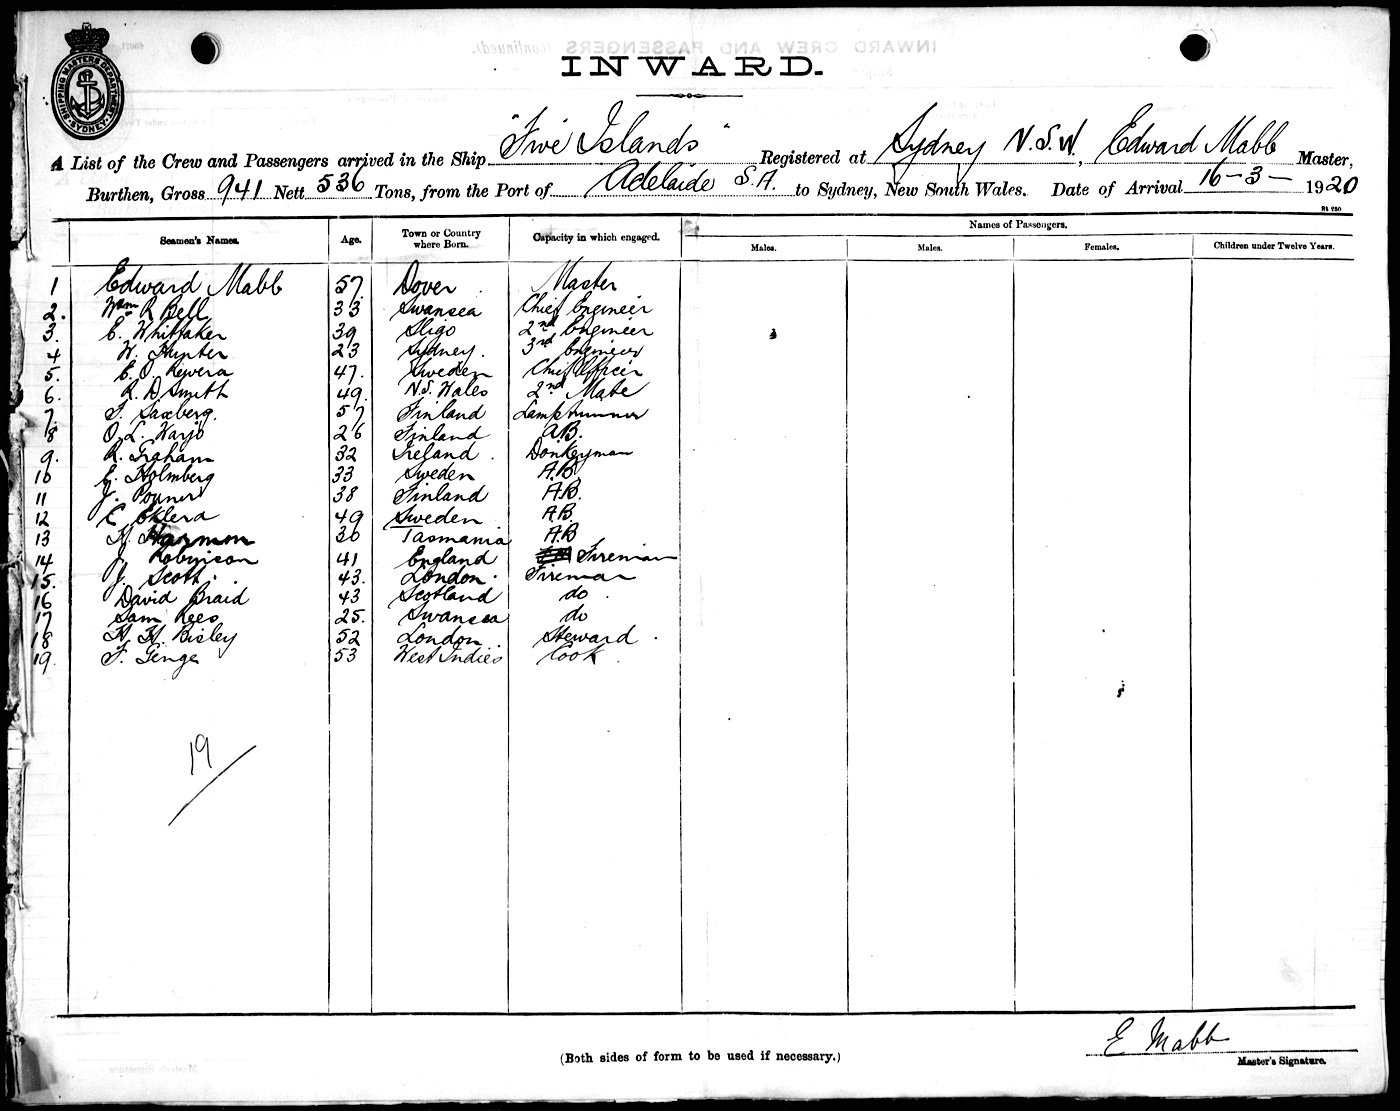 SHIPPING MASTERS DEPARTMENT
SYDNEY
INWARD CREW AND PASSENGERS (continued).
INWARD.
A List of the Crew and Passengers arrived in the Ship "Five Islands" Registered at Sydney N.S.W, Edward Mabb Master,
Burthen, Gross 941 Nett 536 Tons, from the Port of Adelaide S.A. to Sydney, New South Wales. Date of Arrival 16-3- 1920
Seamen's Names. Age. Town or Country where Born. Capacity in which engaged. Names of Passengers.
Males. Males. Females. Children under Twelve Years.
1 Edward Mabb 57 Dover Master
2. Wm R Bell 33 Swansea Chief Engineer
3. E. Whittaker 39 Sligo 2nd Engineer
4 W. Hunter 23 Sydney. 3rd Engineer
5. 47. Sweden Chief Officer
6. R. D Smith 49. N.S. Wales 2nd Mate
7. F. Saxberg. 57 Finland Lamptrimmer
8 O. L. Harjo 26 Finland AB.
9. R. Graham 32 Ireland. Donkeyman
10 E. Holmberg 33 Sweden A.B
11 J. 38 Finland A.B.
12 49 Sweden A.B.
13 H. Harmon 30 Tasmania A.B
14 J. Robinson 41 England Fireman
15. J. Scott. 43. London. Fireman
16 David Braid 43 Scotland do
17 Sam Rees 25. Swansea do
18 H. H. Bisley 52 London Steward
19. F. Genge 53 West Indies Cook
19
E Mabb
(Both sides of form to be used if necessary.)
Master's Signature.